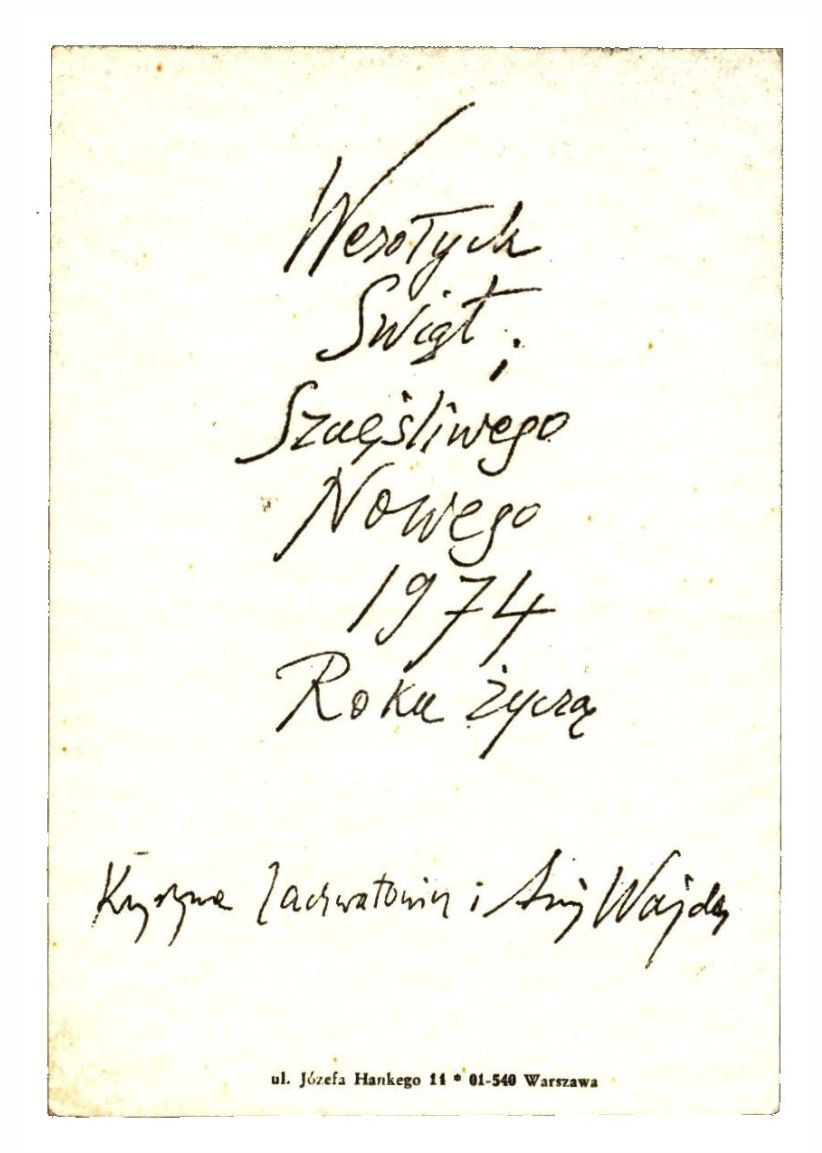 Wesołych
Świąt i
Szczęśliwego
Nowego
1974
Roku życzą
Krystyna Zachwatowicz i Andrzej Wajda
ul. Józefa Hankego 11 * 01-540 Warszawa